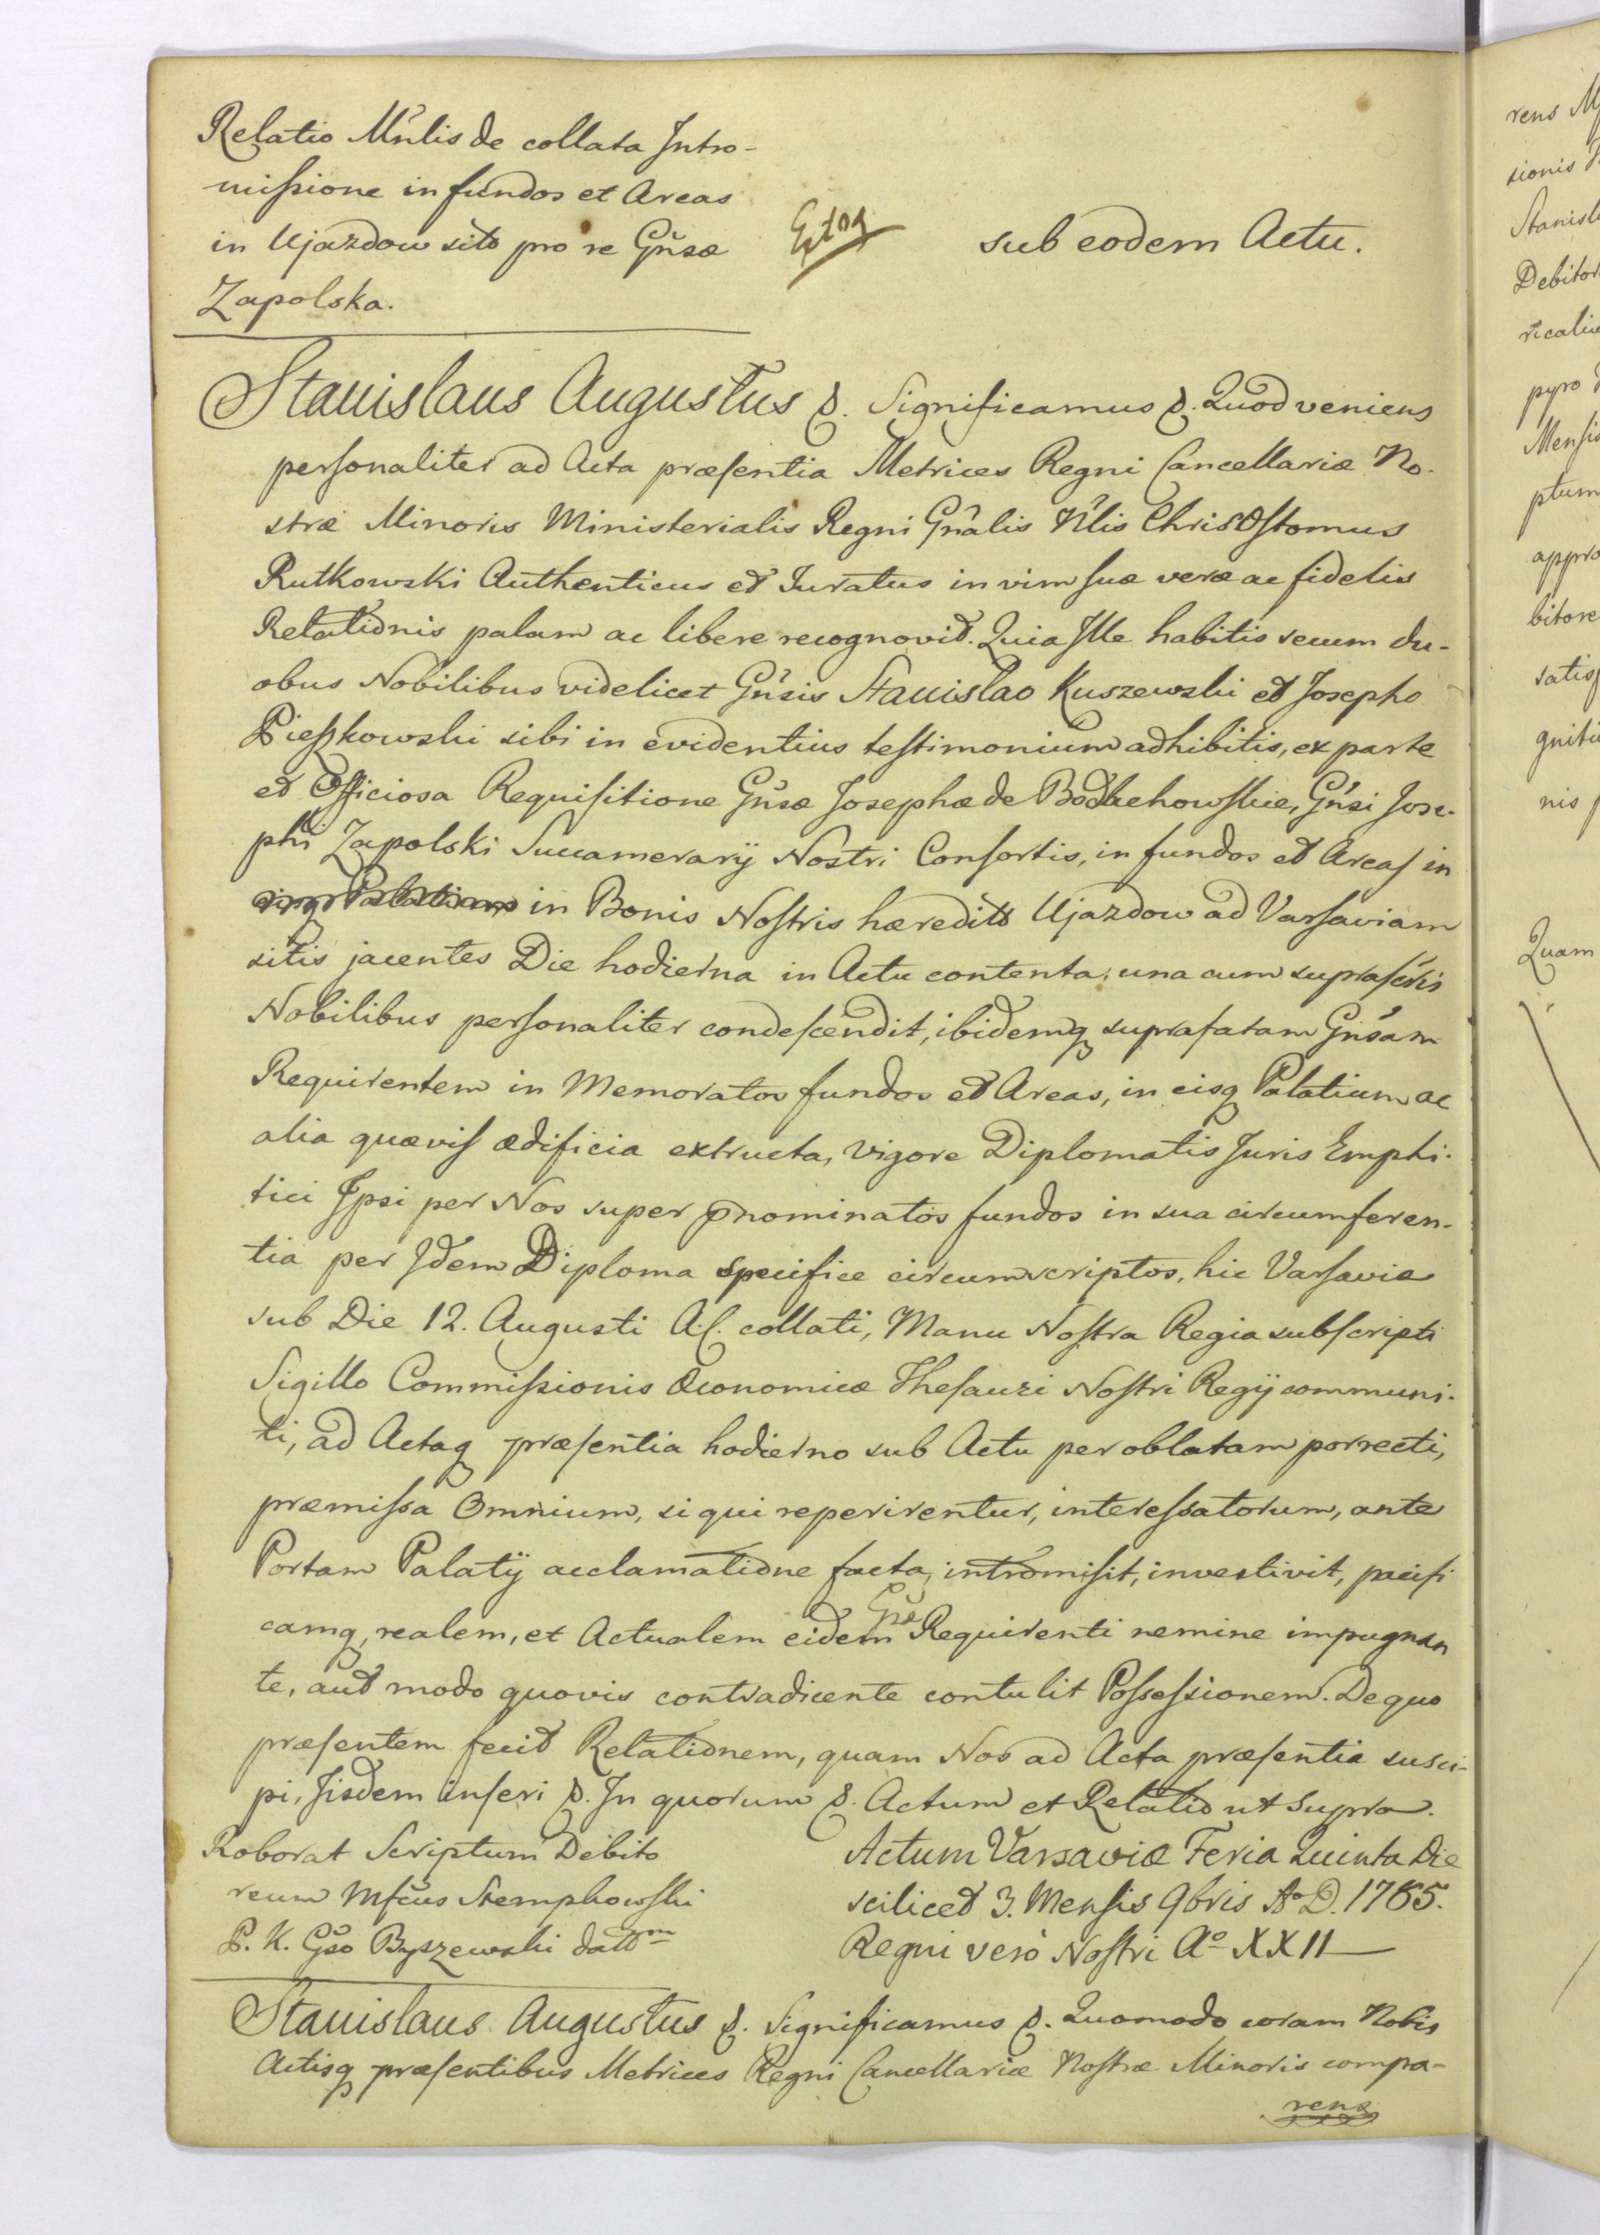 Relatio Mnlis de collata Intro-
missione in fundos et Areas
in Ujazdow sito pro re Gnsæ
Zapolska.
sub eodem Actu.
Stanislaus Augustus &. Significamus &. Quod veniens
personaliter ad Acta præsentia Metrices Regni Cancellariæ No-
stræ Minoris Ministerialis Regni Gnalis Nlis Chrisostomus
Rutkowski Authenticus et Juratus in vim suæ veræ ac fidelis
Relationis palam ac libere recognovit. Quia Ille habitis secum du-
obus Nobilibus videlicet Gnsis Stanislao Kuszewski et Josepho
Pieszkowski sibi in evidentius testimonium adhibitis, ex parte
et Officiosa Requisitione Gnsæ Josephæ de Gnsi Jose-
phi Zapolski Succamerarij Nostri Consortis, in fundos et Areas in
in Bonis Nostris hæredits Ujazdow ad Varsaviam
sitis jacentes Die hodierna in Actu contenta, una cum suprascris
Nobilibus personaliter condescendit, ibidemq suprafatam Gnsam
Requirentem in Memoratos fundos et Areas, in eisq Palatium ac
alia quævis ædificia extructa, vigore Diplomatis Juris Emphi-
tici Ipsi per Nos super pnominatos fundos in sua circumferen-
tia per Idem Diploma specifice circumscriptos, hic Varsaviæ
sub Die 12. Augusti A.C. collati, Manu Nostra Regia subscripti
Sigillo Commissionis Œconomicæ Thesauri Nostri Regij communi-
ti, ad Actaq præsentia hodierno sub Actu per oblatam porrecti,
præmissa Omnium, si qui reperirentur, interessatorum, ante
Portam Palatij acclamatione facta, intromisit, investivit, pacifi
camq, realem, et Actualem eidem Gnsæ Requirenti nemine impugnan
te, aut modo quovis contradicente contulit Possessionem. De quo
præsentem fecit Relationem, quam Nos ad Acta præsentia susci-
pi, Iisdem inseri &. In quorum &. Actum et Relatio ut supra.
Roborat Scriptum Debito
reum Mfcus Stempkowski
P. K. Gso Byszewski datt<sup>m</sup>
Actum Varsaviæ Feria Quinta Die
scilicet 3. Mensis 9bris Ao D. 1785.
Regni vero Nostri Ao XXII
Stanislaus Augustus &. Significamus &. Quomodo coram Nobis
Actisq præsentibus Metrices Regni Cancellariæ Nostræ Minoris compa-
rens
rens
sionis
Debitor
pyro
Mensis
ptum
appro
bitore
satisf
nis
Quam